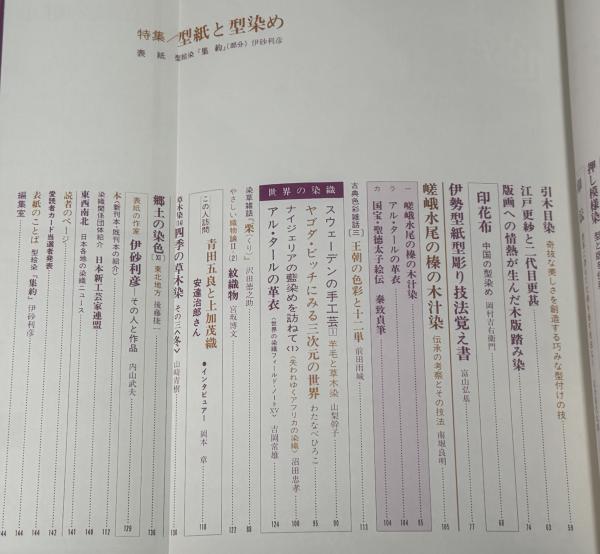 特集/型紙と型染め
表紙 型絵染『集約』(部分) 伊砂利彦
押し模様染
引木目染 奇抜な美しさを創造する巧みな型付けの技 59
江戸更紗と二代目更甚 63
版画への情熱が生んだ木版踏み染 74
印花布 中国の型染め 岡村吉右衛門 68
伊勢型紙型彫り技法覚え書 富山弘基 77
嵯峨水尾の榛の木汁染 伝承の考察とその技法 南堀良明 105
カラー
嵯峨水尾の榛の木汁染 85
アル・タールの革衣 104
国宝・聖徳太子絵伝 秦致貞筆 104
古典色彩雑話[三] 王朝の色彩と十二単 前田雨城 113
世界の染織
スウェーデンの手工芸[1] 羊毛と草木染 山梨幹子 90
ヤゴダ・ビッチにみる三次元の世界 わたなべひろこ 95
ナイジェリアの藍染めを訪ねて〈1〉 〈失われゆくアフリカの染織〉 沼田忠孝 100
アル・タールの革衣 〈世界の染織フィールド・ノートXV〉 吉岡常雄 124
染草雑話『栗』(くり) 沢田徳之助 88
やさしい織物論II〈2〉 紋織物 宮坂博文 122
この人訪問
青田五良と上加茂織
安達治郎さん ●インタビュアー 岡本章 118
草木染[14] 四季の草木染 その三〈冬〉 山崎青樹 130
郷土の染色[XI] 東北地方 後藤捷一 136
表紙の作家 伊砂利彦 その人と作品 内山武夫 129
本〈新刊本・既刊本の紹介〉 112
染織関係団体紹介 日本新工芸家連盟 141
東西南北 日本各地の染織ニュース 142
読者のページ 140
愛読者カード当選者発表 144
表紙のことば 型絵染『集約』伊砂利彦 144
編集室 144